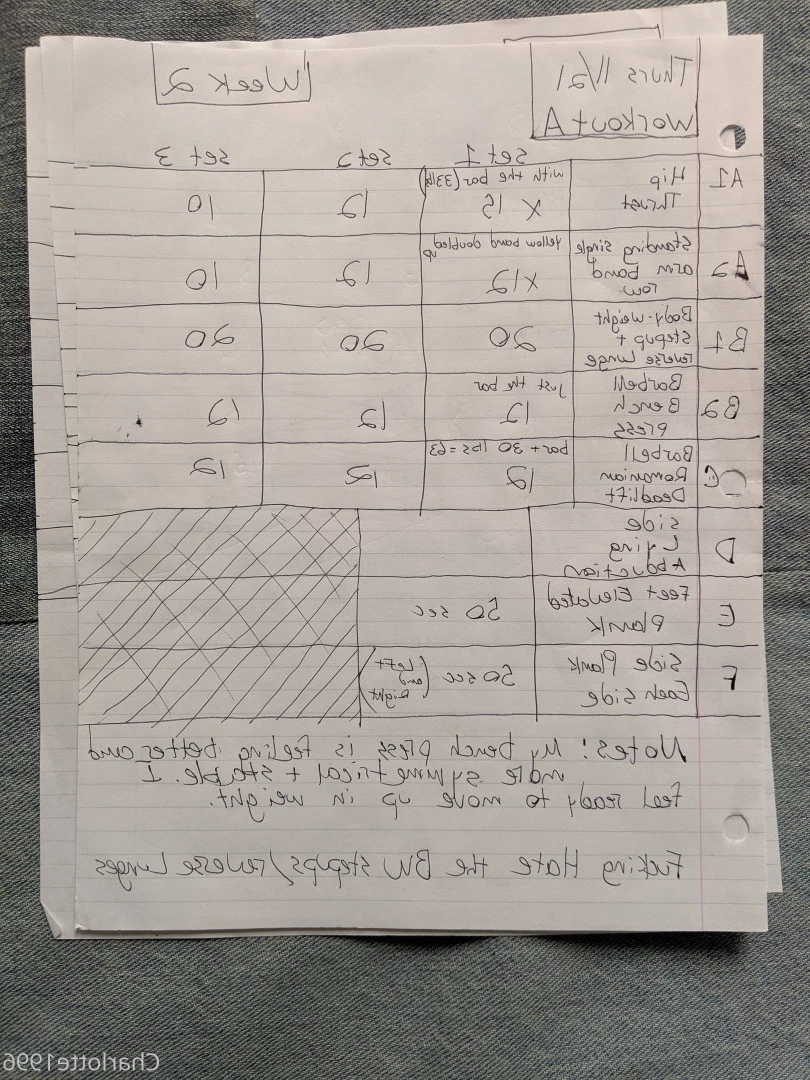 Thurs 11/21
Workout A
Week 2
Set 1 Set 2 Set 3
A1 Hip Thrust with the bar (33lb) X 15 12 10
A2 Standing single arm band row yellow band doubled up X12 12 10
B1 Body-weight stepup + reverse lunge 20 20 20
B2 Barbell Bench press Just the bar 12 12 12
C Barbell Romanian Deadlift bar + 30 lbs = 63 12 12 12
D Side Lying Abduction
E Feet Elevated Plank 50 sec
F Side Plank Each side 50 sec (Left and Right)
Notes: My bench press is feeling better and
more symmetrical + stable. I
feel ready to move up in weight.
Fucking Hate the BW stepups/reverse lunges
Charlotte1996